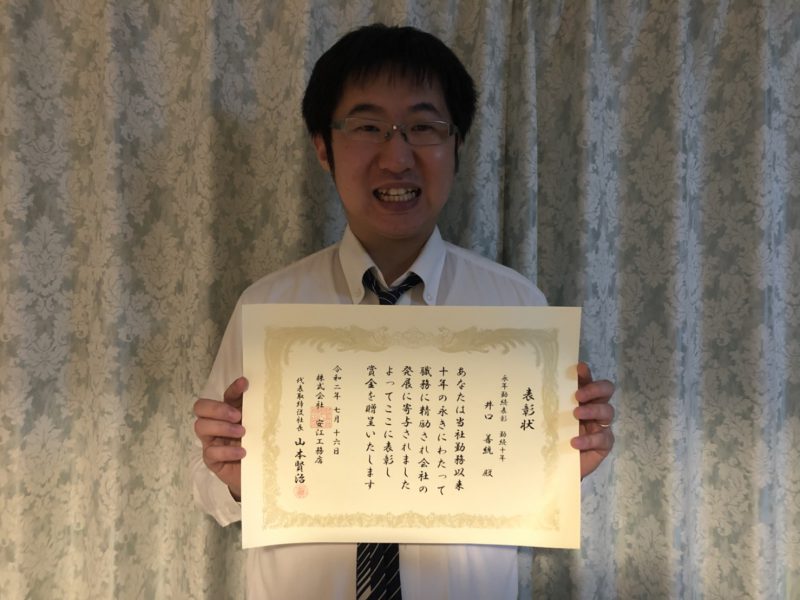 表彰状
永年勤続表彰 勤続十年
井口 善統 殿
あなたは当社勤務以来
十年の永きにわたって
職務に精励され会社の
発展に寄与されました
よってここに表彰し
賞金を贈呈いたします
令和二年 七月 十六日
株式会社 安江工務店
代表取締役社長 山本賢治